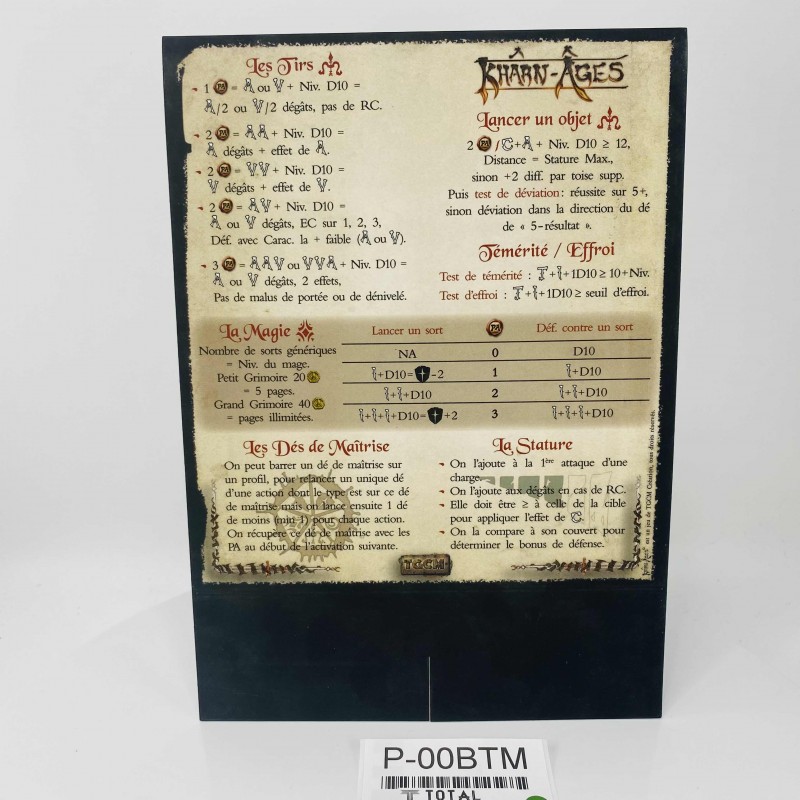 Les Tirs
1 PA = ou + Niv. D10 =
/2 ou /2 dégâts, pas de RC.
2 PA = + Niv. D10 =
dégâts + effet de .
2 PA = + Niv. D10 =
dégâts + effet de .
2 PA = + Niv. D10 =
ou dégâts, EC sur 1, 2, 3,
Déf. avec Carac. la + faible ( ou ).
3 PA = ou + Niv. D10 =
ou dégâts, 2 effets,
Pas de malus de portée ou de dénivelé.
KHÂRN-ÂGES
Lancer un objet
2 PA / + + Niv. D10 ≥ 12,
Distance = Stature Max.,
sinon +2 diff. par toise supp.
Puis test de déviation : réussite sur 5+,
sinon déviation dans la direction du dé
de « 5-résultat ».
Témérité / Effroi
Test de témérité : + +1D10 ≥ 10+Niv.
Test d'effroi : + +1D10 ≥ seuil d'effroi.
La Magie
Nombre de sorts génériques
= Niv. du mage.
Petit Grimoire 20
= 5 pages.
Grand Grimoire 40
= pages illimitées.
Lancer un sort PA Déf. contre un sort
NA 0 D10
+D10= -2 1 +D10
+ +D10 2 + +D10
+ + +D10= +2 3 + + +D10
Les Dés de Maîtrise
On peut barrer un dé de maîtrise sur
un profil, pour relancer un unique dé
d'une action dont le type est sur ce dé
de maîtrise mais on lance ensuite 1 dé
de moins (min 1) pour chaque action.
On récupère 1 dé de maîtrise avec les
PA au début de l'activation suivante.
La Stature
On l'ajoute à la 1ère attaque d'une
charge.
On l'ajoute aux dégâts en cas de RC.
Elle doit être ≥ à celle de la cible
pour appliquer l'effet de .
On la compare à son couvert pour
déterminer le bonus de défense.
est un jeu de TGCM Création, tous droits réservés.
TGCM
P-00BTM
TOTAL